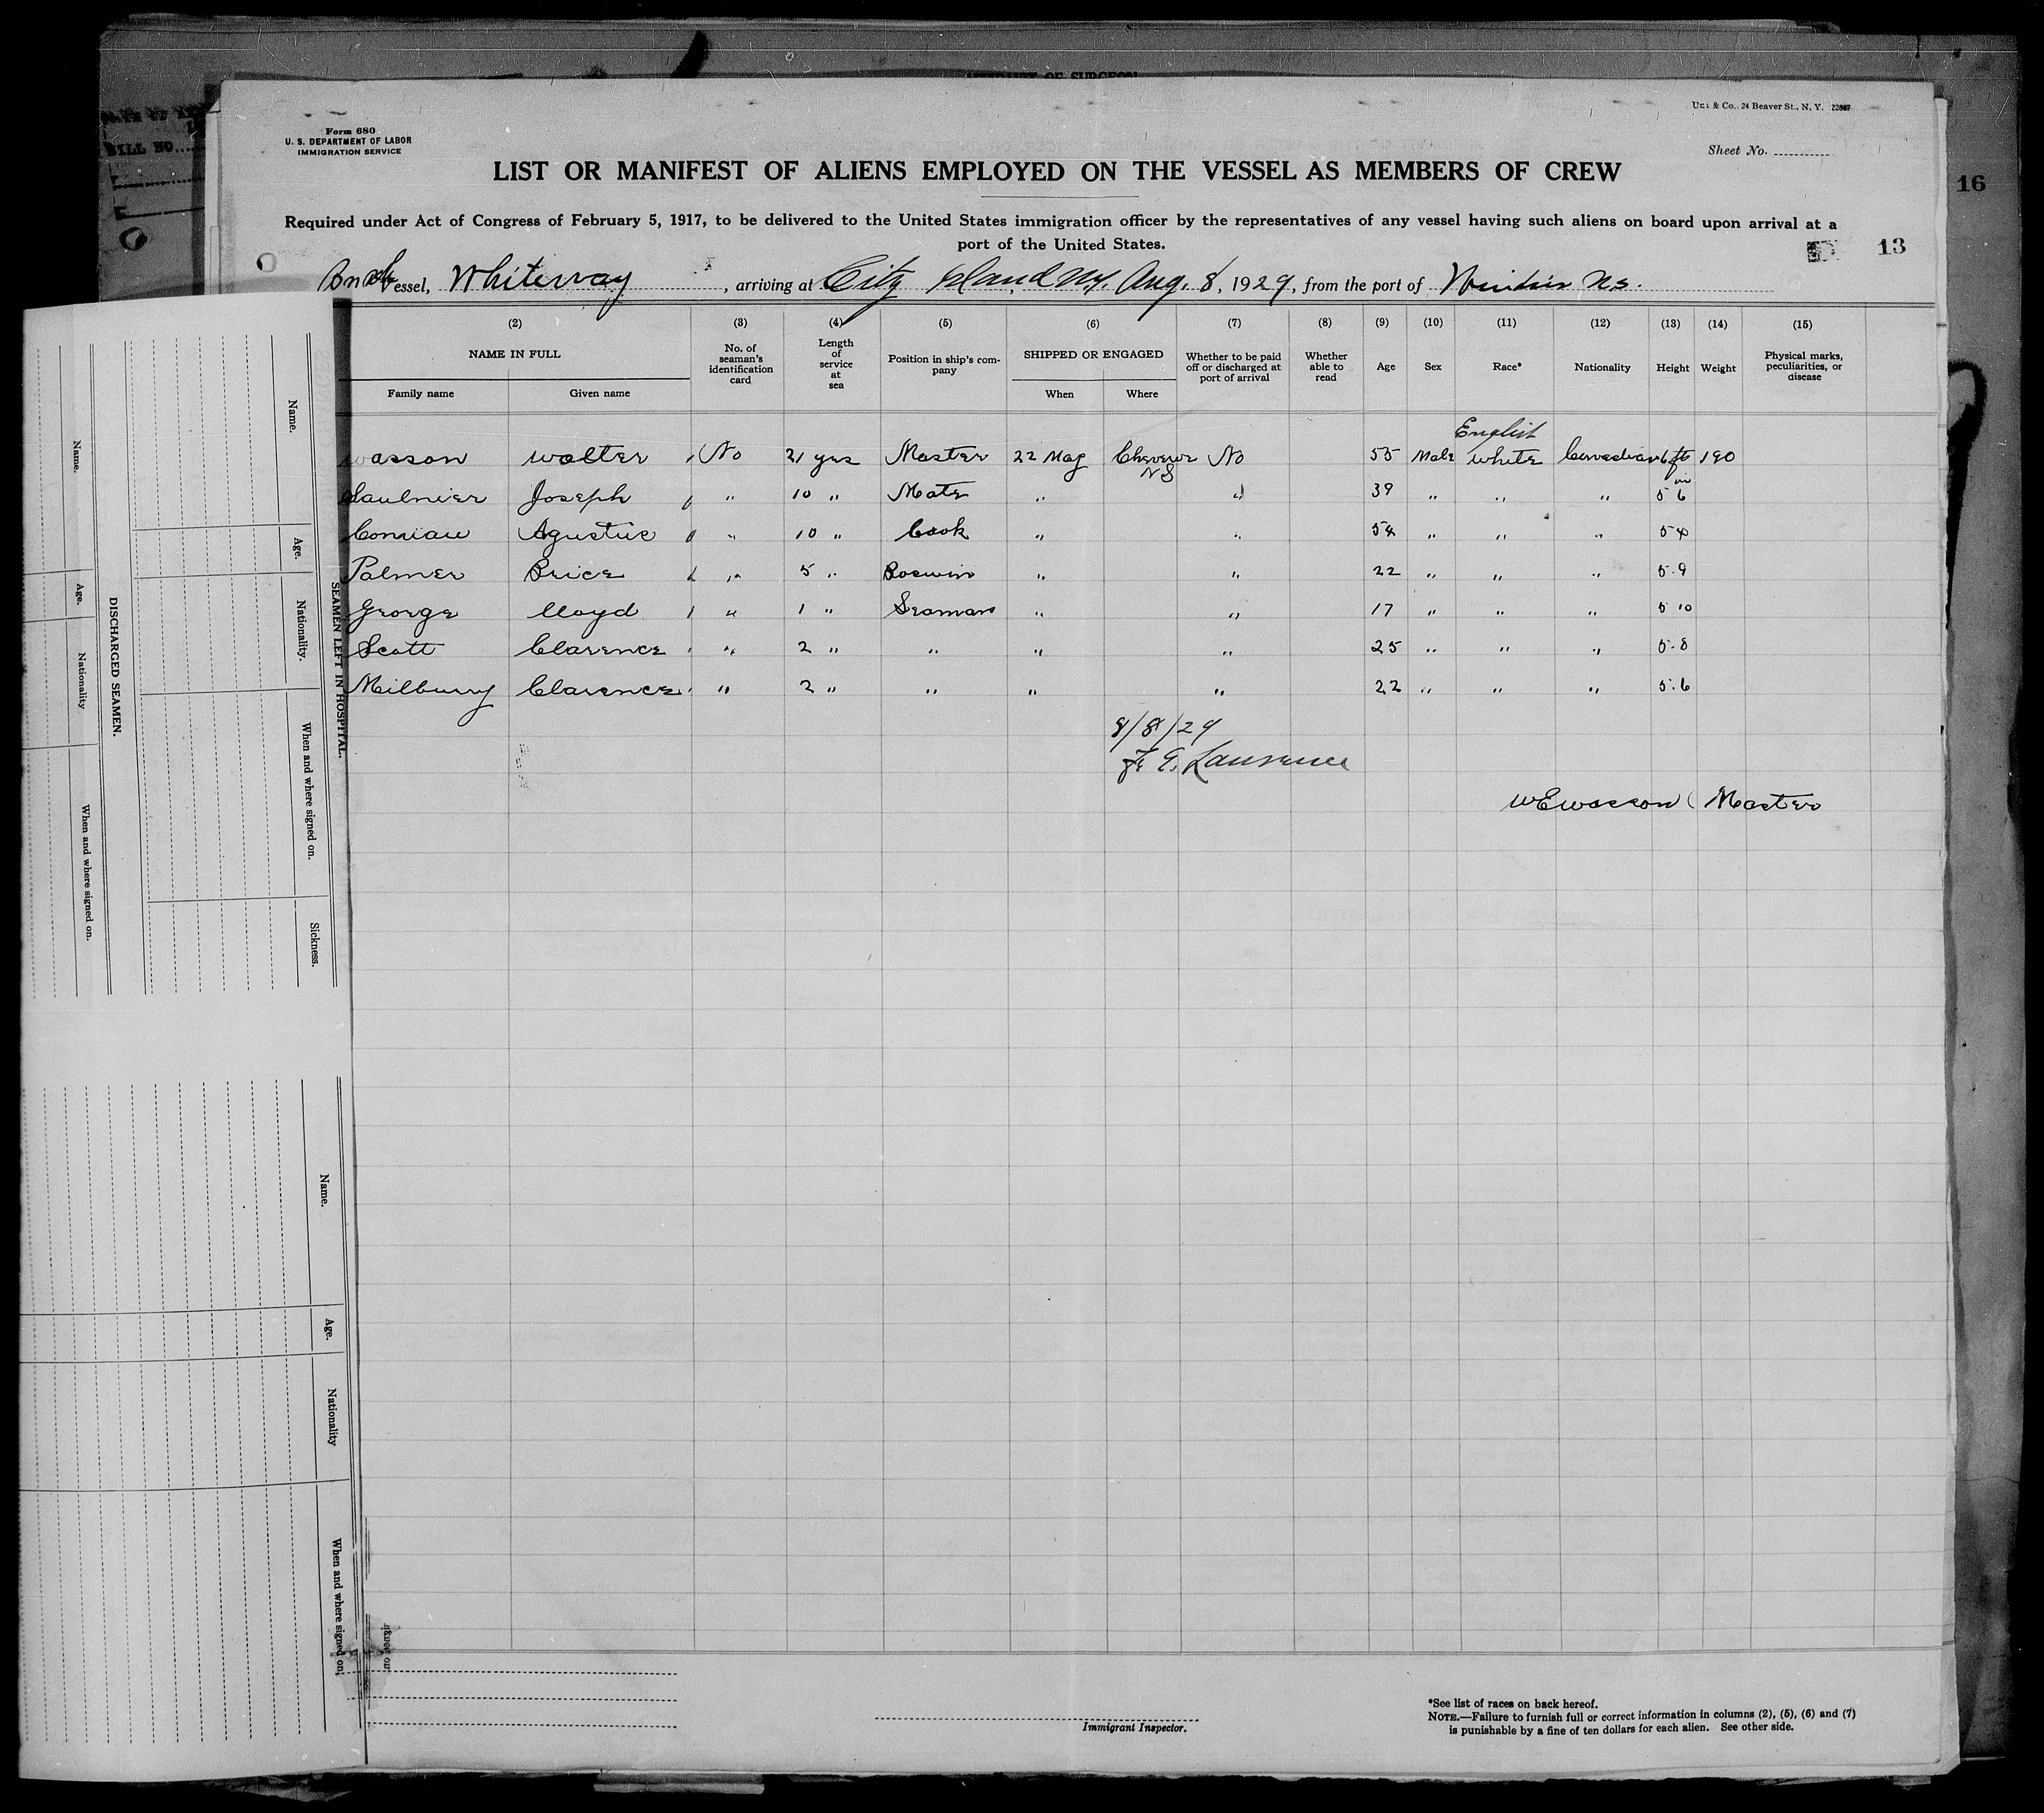 AFFIDAVIT OF SURGEON
BILL NO.
16
Form 680
U. S. DEPARTMENT OF LABOR
IMMIGRATION SERVICE
& Co. 24 Beaver St., N. Y.
Sheet No.
LIST OR MANIFEST OF ALIENS EMPLOYED ON THE VESSEL AS MEMBERS OF CREW
Required under Act of Congress of February 5, 1917, to be delivered to the United States immigration officer by the representatives of any vessel having such aliens on board upon arrival at a
port of the United States.
13
Vessel, Whiteway, arriving at City Island NY. Aug. 8, 1929, from the port of Windsor N.S.
(2) (3) (4) (5) (6) (7) (8) (9) (10) (11) (12) (13) (14) (15)
NAME IN FULL
Family name Given name
No. of seaman's identification card
Length of service at sea
Position in ship's company
SHIPPED OR ENGAGED
When Where
Whether to be paid off or discharged at port of arrival
Whether able to read
Age Sex Race* Nationality Height Weight
Physical marks, peculiarities, or disease
English
wasson walter No 21 yrs Master 22 May Cheverie NS No 55 Male white Canadian 6 ft 190
Saulnier Joseph " 10 " Mate " " 39 " " " 5 6
Comiau Agustus " 10 " Cook " " 54 " " " 5 4
Palmer Brice " 5 " Boswin " " 22 " " " 5.9
George lloyd " 1 " Seaman " " 17 " " " 5 10
Scott Clarence " 2 " " " " 25 " " " 5.8
Milburry Clarence " 2 " " " " 22 " " " 5.6
8/8/29
Laurence
W E Wasson Master
DISCHARGED SEAMEN.
Name. Age. Nationality When and where signed on.
SEAMEN LEFT IN HOSPITAL.
Name. Age. Nationality. When and where signed on. Sickness.
Name. Age. Nationality When and where signed on.
Immigrant Inspector.
*See list of races on back hereof.
NOTE.—Failure to furnish full or correct information in columns (2), (5), (6) and (7)
is punishable by a fine of ten dollars for each alien. See other side.